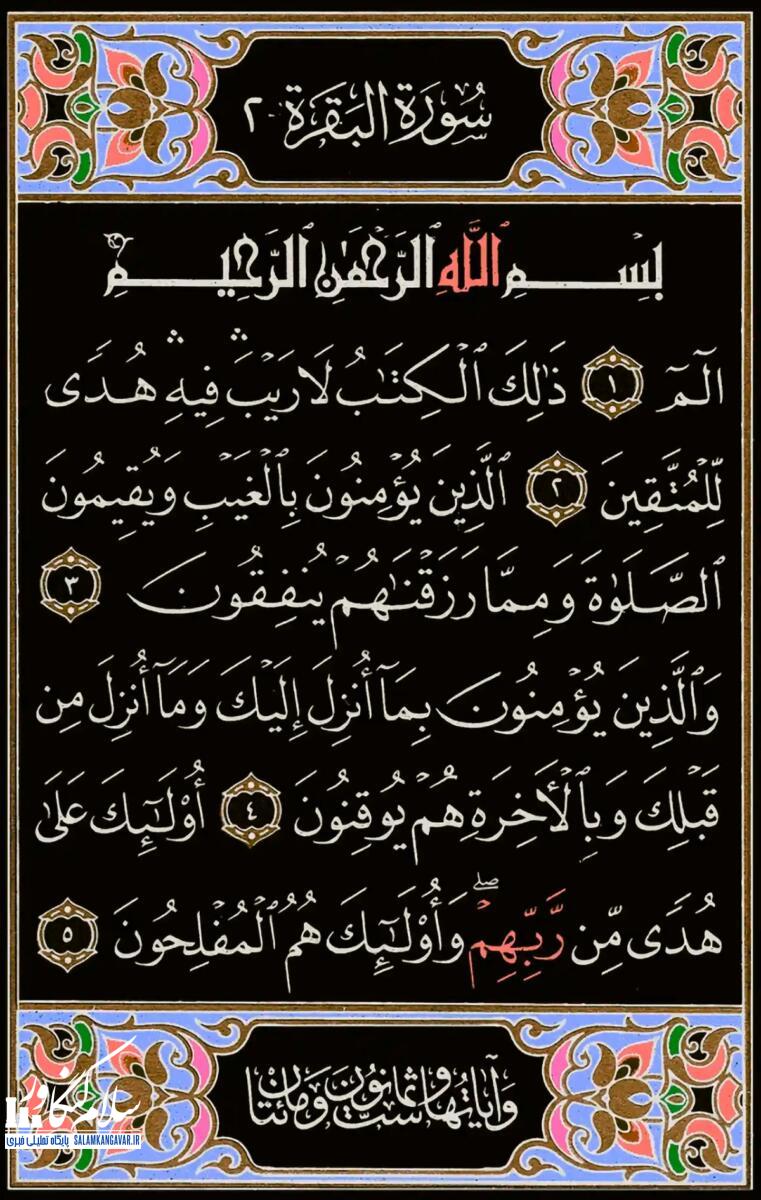 سُورَةُ البَقَرَة ٢
بِسْمِ ٱللَّهِ ٱلرَّحْمَٰنِ ٱلرَّحِيمِ
الٓمٓ ١ ذَٰلِكَ ٱلْكِتَٰبُ لَا رَيْبَ ۛ فِيهِ ۛ هُدًى
لِّلْمُتَّقِينَ ٢ ٱلَّذِينَ يُؤْمِنُونَ بِٱلْغَيْبِ وَيُقِيمُونَ
ٱلصَّلَوٰةَ وَمِمَّا رَزَقْنَٰهُمْ يُنفِقُونَ ٣
وَٱلَّذِينَ يُؤْمِنُونَ بِمَآ أُنزِلَ إِلَيْكَ وَمَآ أُنزِلَ مِن
قَبْلِكَ وَبِٱلْأَخِرَةِ هُمْ يُوقِنُونَ ٤ أُو۟لَٰٓئِكَ عَلَىٰ
هُدًى مِّن رَّبِّهِمْ ۖ وَأُو۟لَٰٓئِكَ هُمُ ٱلْمُفْلِحُونَ ٥
وَآيَاتُهَا سِتٌّ وَثَمَانُونَ وَمَائَتَان
سلام کنگاور
پایگاه تحلیلی خبری SALAMKANGAVAR.IR